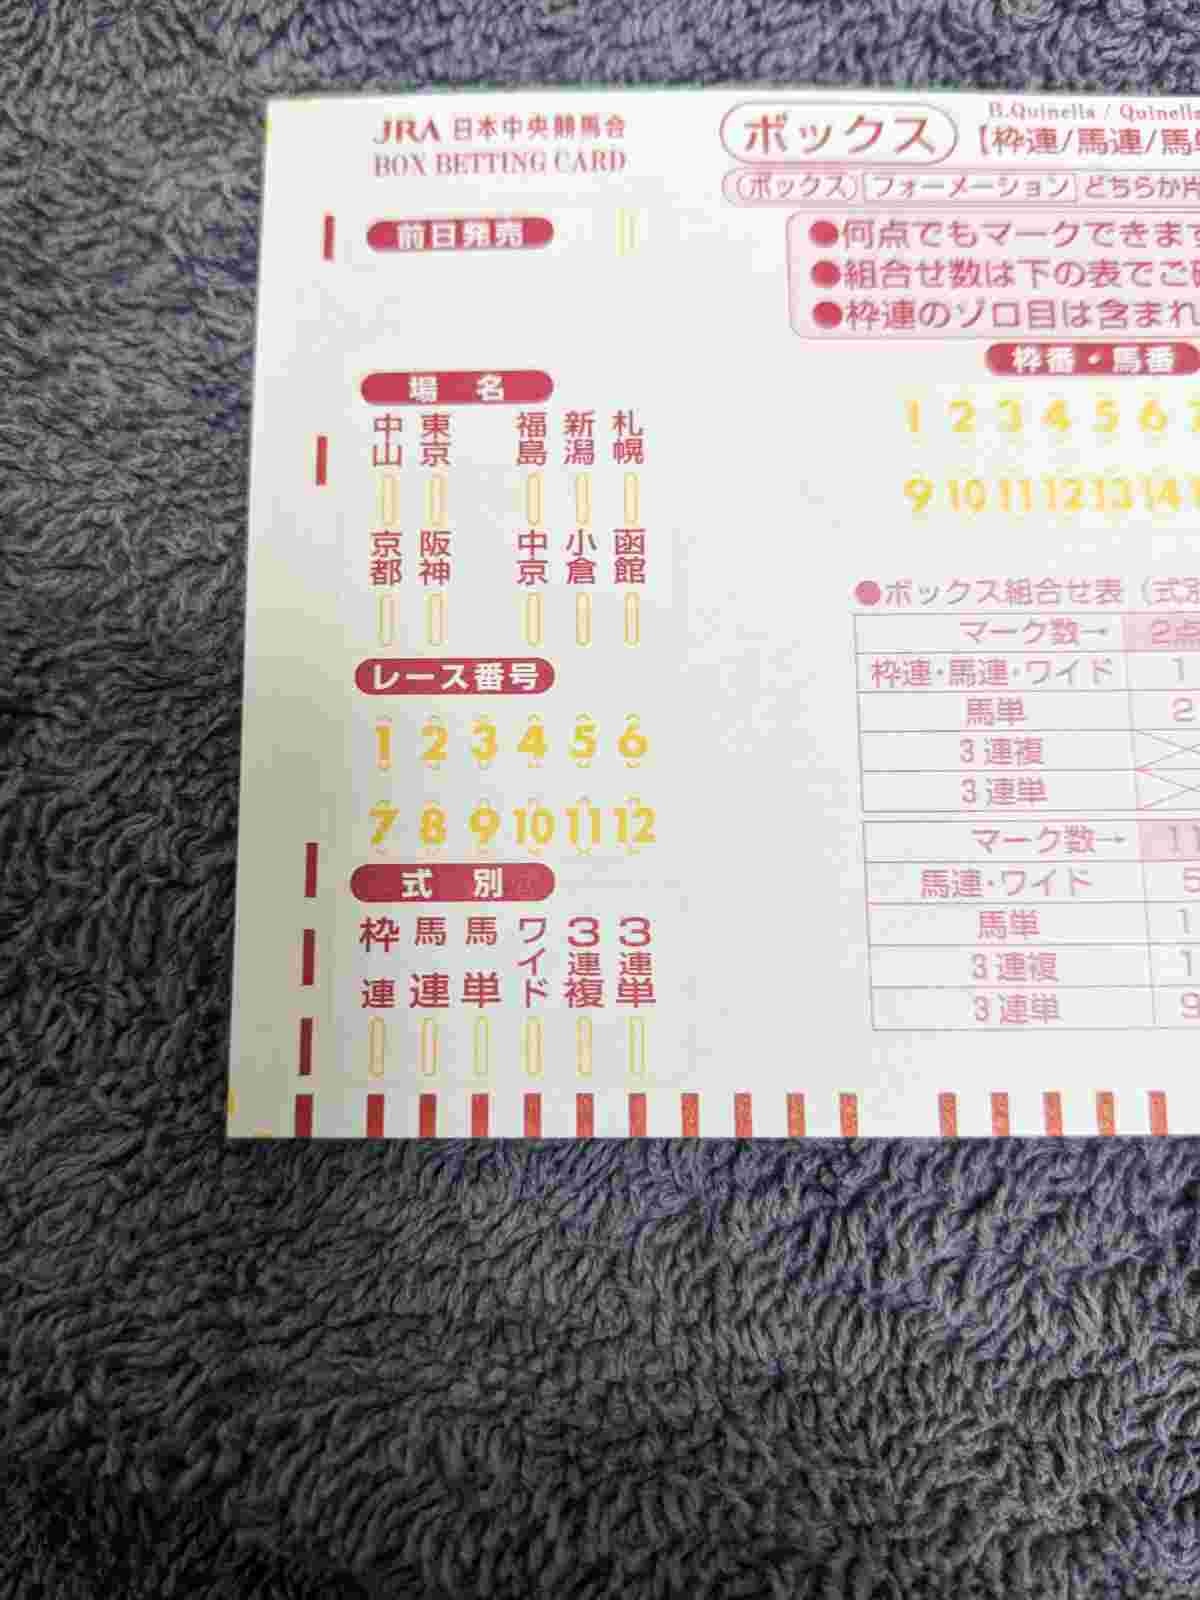 JRA 日本中央競馬会
BOX BETTING CARD
前日発売
場 名
中山 東京 福島 新潟 札幌
京都 阪神 中京 小倉 函館
レース番号
1 2 3 4 5 6
7 8 9 10 11 12
式 別
枠連 馬連 馬単 ワイド 3連複 3連単
B.Quinella / Quinella
ボックス 【枠連/馬連/馬単
ボックス フォーメーション どちらか片
●何点でもマークできます
●組合せ数は下の表でご確
●枠連のゾロ目は含まれ
枠番・馬番
1 2 3 4 5 6 7
9 10 11 12 13 14
●ボックス組合せ表（式別
マーク数→ 2点
枠連・馬連・ワイド 1
馬単 2
3連複
3連単
マーク数→ 11
馬連・ワイド 5
馬単 1
3連複 1
3連単 9